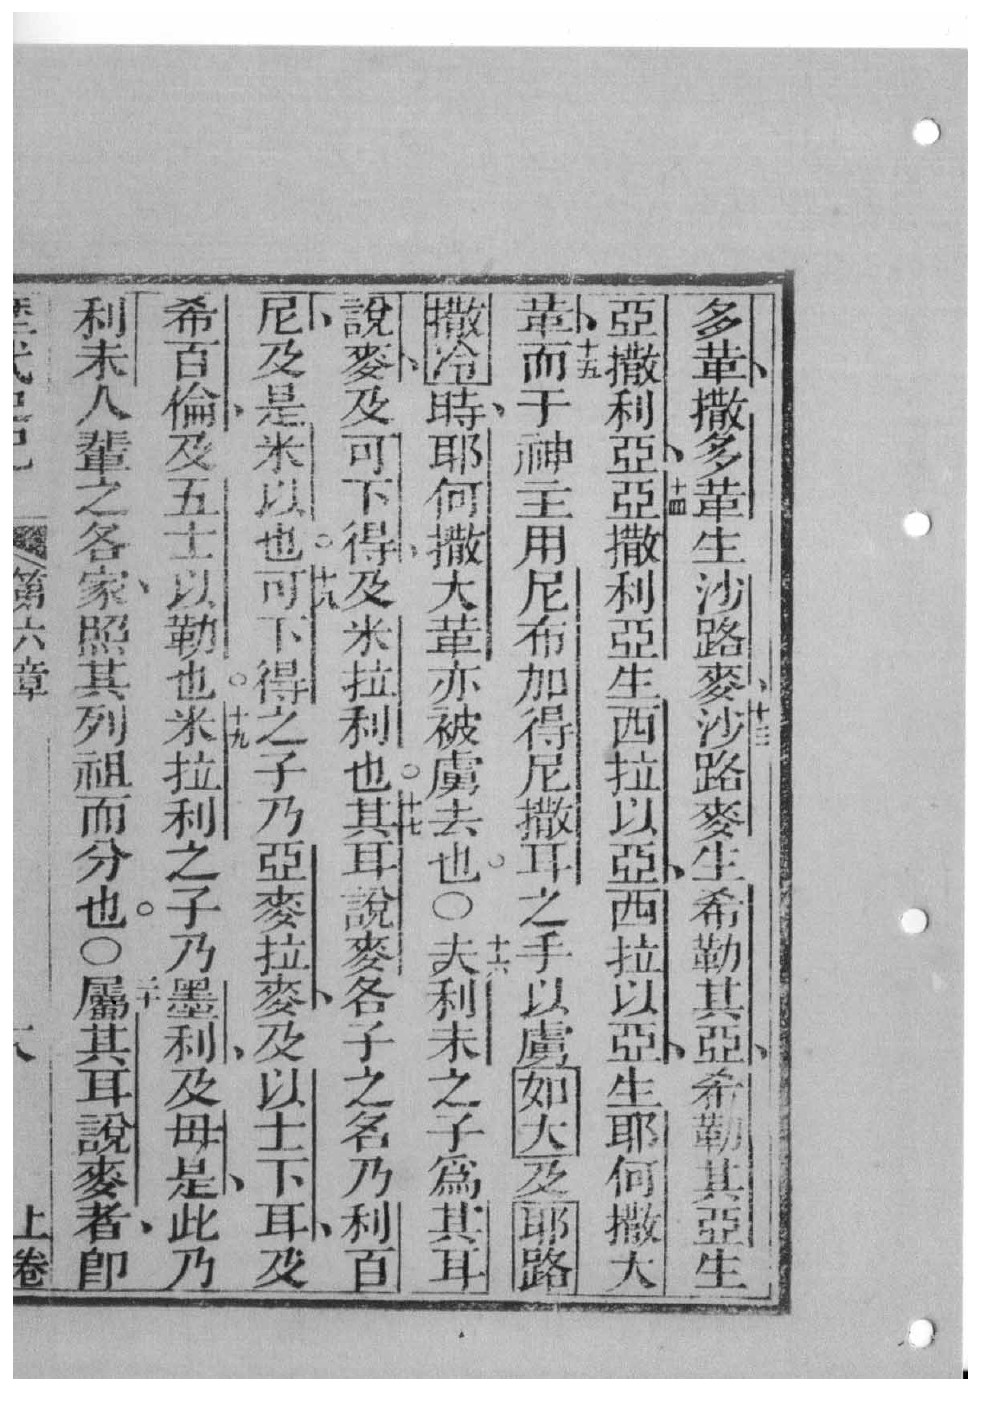 多革、撒多革生沙路麥、十三沙路麥生希勒其亞、希勒其亞生
亞撒利亞、十四亞撒利亞生西拉以亞、西拉以亞、生耶何撒大
革、十五而于神主用尼布加得尼撒耳之手以虜如大及耶路
撒冷時、耶何撒大革亦被虜去也。○十六夫利未之子爲其耳
說麥、及可下得、及米拉利也。十七其耳說麥各子之名乃利百
尼、及是米以也。十八可下得之子乃亞麥拉麥、及以士下耳、及
希百倫、及五士以勒也。十九米拉利之子乃墨利、及毋是、此乃
利未人輩之各家、照其列祖而分也。○二十屬其耳說麥者、卽
第六章 上卷